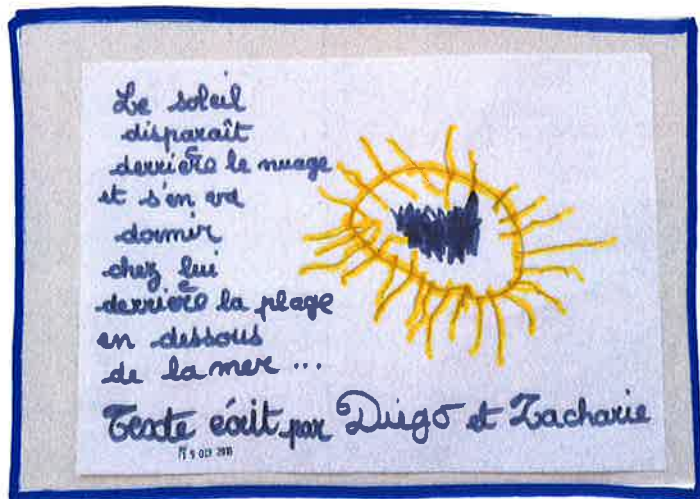 Le soleil
disparaît
derrière le nuage
et s'en va
dormir
chez lui
derrière la plage
en dessous
de la mer ...
Texte écrit par Diego et Zacharie